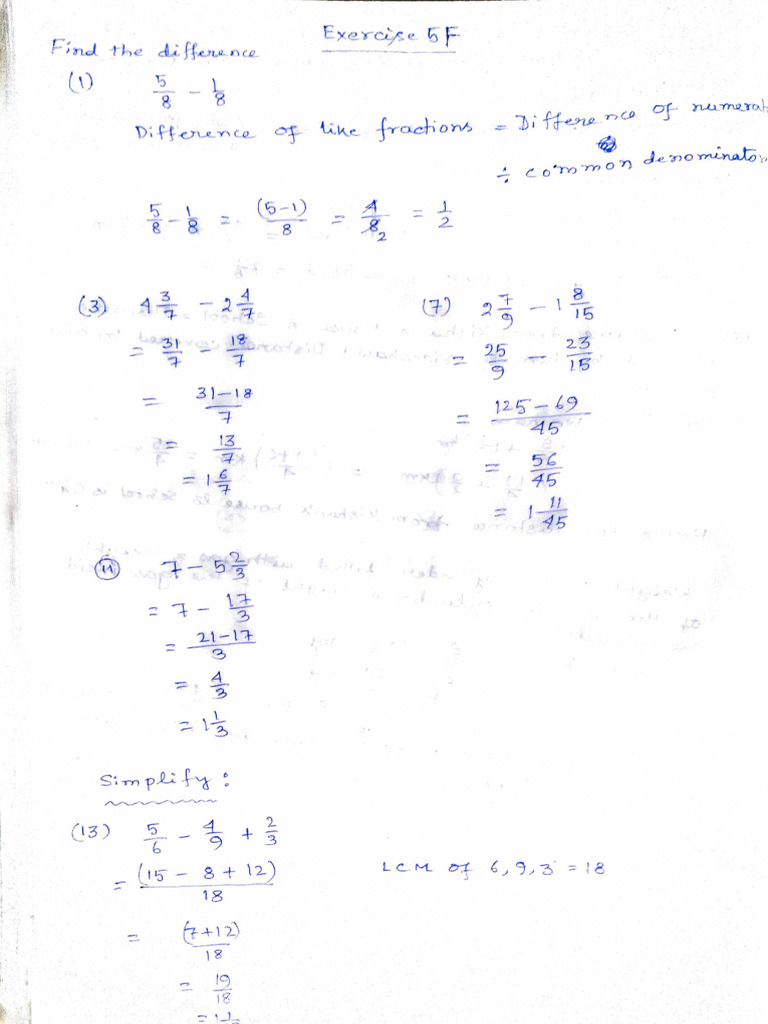 Exercise 5F
Find the difference
(1) 5/8 - 1/8
Difference of like fractions = Difference of numerat
÷ common denominator
5/8 - 1/8 = (5-1)/8 = 4/8 2 = 1/2
(3) 4 3/7 - 2 4/7
= 31/7 - 18/7
= 31-18/7
= 13/7
= 1 6/7
(7) 2 7/9 - 1 8/15
= 25/9 - 23/15
= 125-69/45
= 56/45
= 1 11/45
(11) 7 - 5 2/3
= 7 - 17/3
= 21-17/3
= 4/3
= 1 1/3
Simplify:
(13) 5/6 - 4/9 + 2/3
= (15 - 8 + 12)/18 LCM of 6,9,3 = 18
= (7+12)/18
= 19/18